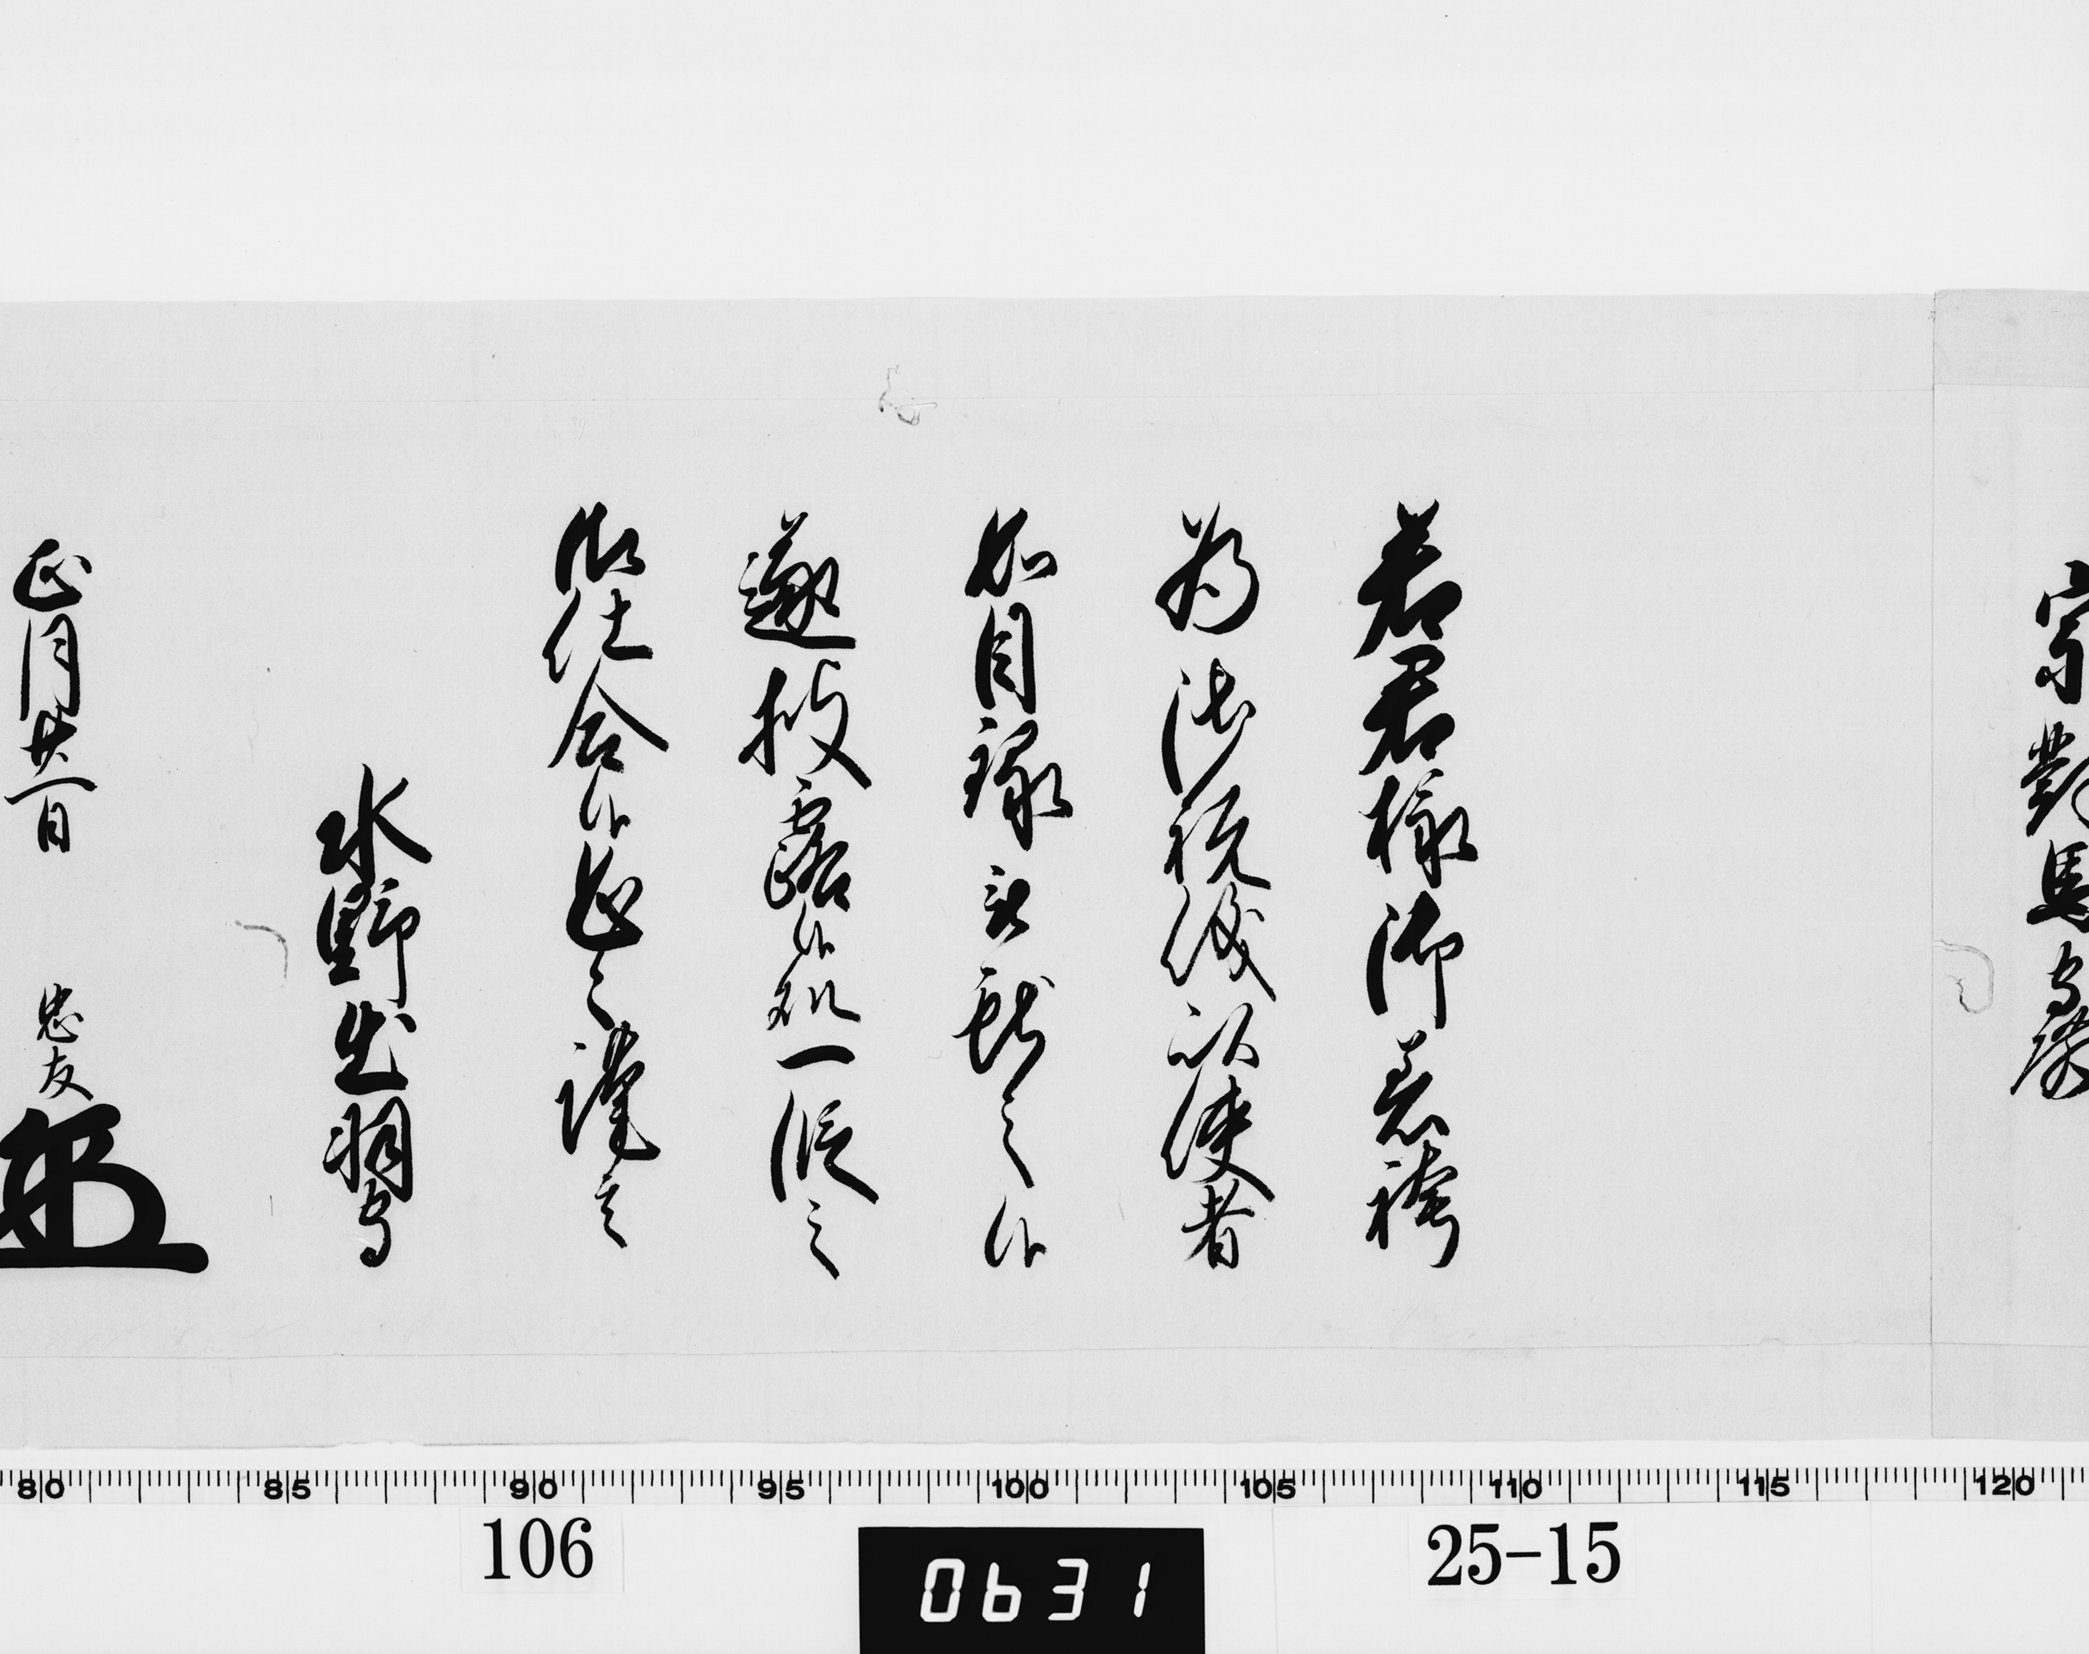 宗對馬守殿
若君様御着袴
為御祝儀以使者
如目録被献之候
遂披露候処一段之
御仕合候恐々謹言
水野出羽守
正月廿一日
忠友
80 85 90 95 100 105 110 115 120
106
0631
25-15